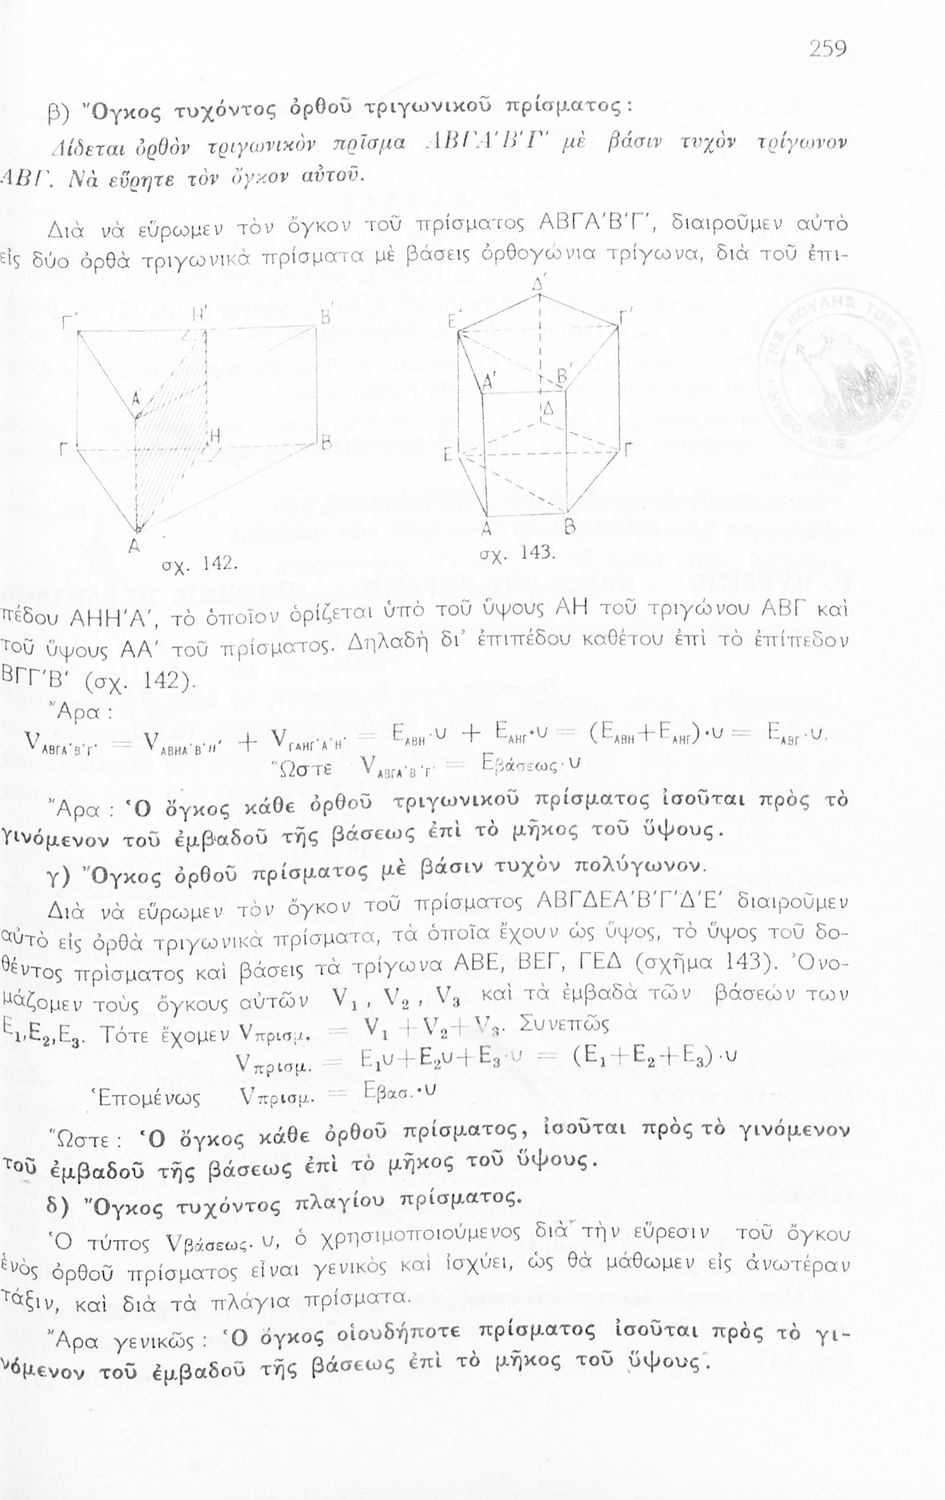 259
β) Ὄγκος τυχόντος ὀρθοῦ τριγωνικοῦ πρίσματος :
Δίδεται ὀρθὸν τριγωνικὸν πρῖσμα ΑΒΓΑ'Β'Γ' μὲ βάσιν τυχὸν τρίγωνον
ΑΒΓ. Νὰ εὕρητε τὸν ὄγκον αὐτοῦ.
Διὰ νὰ εὕρωμεν τὸν ὄγκον τοῦ πρίσματος ΑΒΓΑ'Β'Γ', διαιροῦμεν αὐτὸ
εἰς δύο ὀρθὰ τριγωνικὰ πρίσματα μὲ βάσεις ὀρθογώνια τρίγωνα, διὰ τοῦ ἐπι-
Γ' Η' Β'
Α'
Γ Η Β
Α
σχ. 142.
Δ'
Ε' Γ'
Α' Β'
Δ
Ε Γ
Α Β
σχ. 143.
ΤΗΣ ΒΟΥΛΗΣ ΤΩΝ ΕΛΛΗΝΩΝ
πέδου ΑΗΗ'Α', τὸ ὁποῖον ὁρίζεται ὑπὸ τοῦ ὕψους ΑΗ τοῦ τριγώνου ΑΒΓ καὶ
τοῦ ὕψους ΑΑ' τοῦ πρίσματος. Δηλαδὴ δι' ἐπιπέδου καθέτου ἐπὶ τὸ ἐπίπεδον
ΒΓΓ'Β' (σχ. 142).
Ἄρα :
V_ΑΒΓΑ'Β'Γ' = V_ΑΒΗΑ'Β'Η' + V_ΓΑΗΓ'Α'Η' = Ε_ΑΒΗ·υ + Ε_ΑΗΓ·υ = (Ε_ΑΒΗ+Ε_ΑΗΓ)·υ = Ε_ΑΒΓ·υ.
Ὥστε V_ΑΒΓΑ'Β'Γ' = Εβάσεως·υ
Ἄρα : Ὁ ὄγκος κάθε ὀρθοῦ τριγωνικοῦ πρίσματος ἰσοῦται πρὸς τὸ
γινόμενον τοῦ ἐμβαδοῦ τῆς βάσεως ἐπὶ τὸ μῆκος τοῦ ὕψους.
γ) Ὄγκος ὀρθοῦ πρίσματος μὲ βάσιν τυχὸν πολύγωνον.
Διὰ νὰ εὕρωμεν τὸν ὄγκον τοῦ πρίσματος ΑΒΓΔΕΑ'Β'Γ'Δ'Ε' διαιροῦμεν
αὐτὸ εἰς ὀρθὰ τριγωνικὰ πρίσματα, τὰ ὁποῖα ἔχουν ὡς ὕψος, τὸ ὕψος τοῦ δο-
θέντος πρίσματος καὶ βάσεις τὰ τρίγωνα ΑΒΕ, ΒΕΓ, ΓΕΔ (σχῆμα 143). Ὀνο-
μάζομεν τοὺς ὄγκους αὐτῶν V₁, V₂, V₃ καὶ τὰ ἐμβαδὰ τῶν βάσεών των
Ε₁,Ε₂,Ε₃. Τότε ἔχομεν Vπρισμ. = V₁ + V₂ + V₃. Συνεπῶς
Vπρισμ. = Ε₁υ+Ε₂υ+Ε₃·υ = (Ε₁+Ε₂+Ε₃)·υ
Ἑπομένως Vπρισμ. = Εβασ.·υ
Ὥστε : Ὁ ὄγκος κάθε ὀρθοῦ πρίσματος, ἰσοῦται πρὸς τὸ γινόμενον
τοῦ ἐμβαδοῦ τῆς βάσεως ἐπὶ τὸ μῆκος τοῦ ὕψους.
δ) Ὄγκος τυχόντος πλαγίου πρίσματος.
Ὁ τύπος Vβάσεως· υ, ὁ χρησιμοποιούμενος διὰ τὴν εὕρεσιν τοῦ ὄγκου
ἑνὸς ὀρθοῦ πρίσματος εἶναι γενικὸς καὶ ἰσχύει, ὡς θὰ μάθωμεν εἰς ἀνωτέραν
τάξιν, καὶ διὰ τὰ πλάγια πρίσματα.
Ἄρα γενικῶς : Ὁ ὄγκος οἱουδήποτε πρίσματος ἰσοῦται πρὸς τὸ γι-
νόμενον τοῦ ἐμβαδοῦ τῆς βάσεως ἐπὶ τὸ μῆκος τοῦ ὕψους.